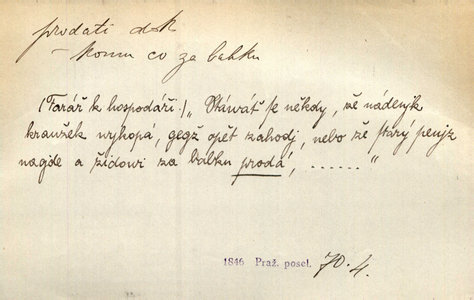 prodati dok
– komu co za babku
(Farář k hospodáři:) „Stáwáť se někdy, že nádenjk
kraužek wykopá, gegž opět zahodj, nebo že starý penjz
nagde a židowi za babku prodá, ......“
1846 Praž. posel. 70.4.